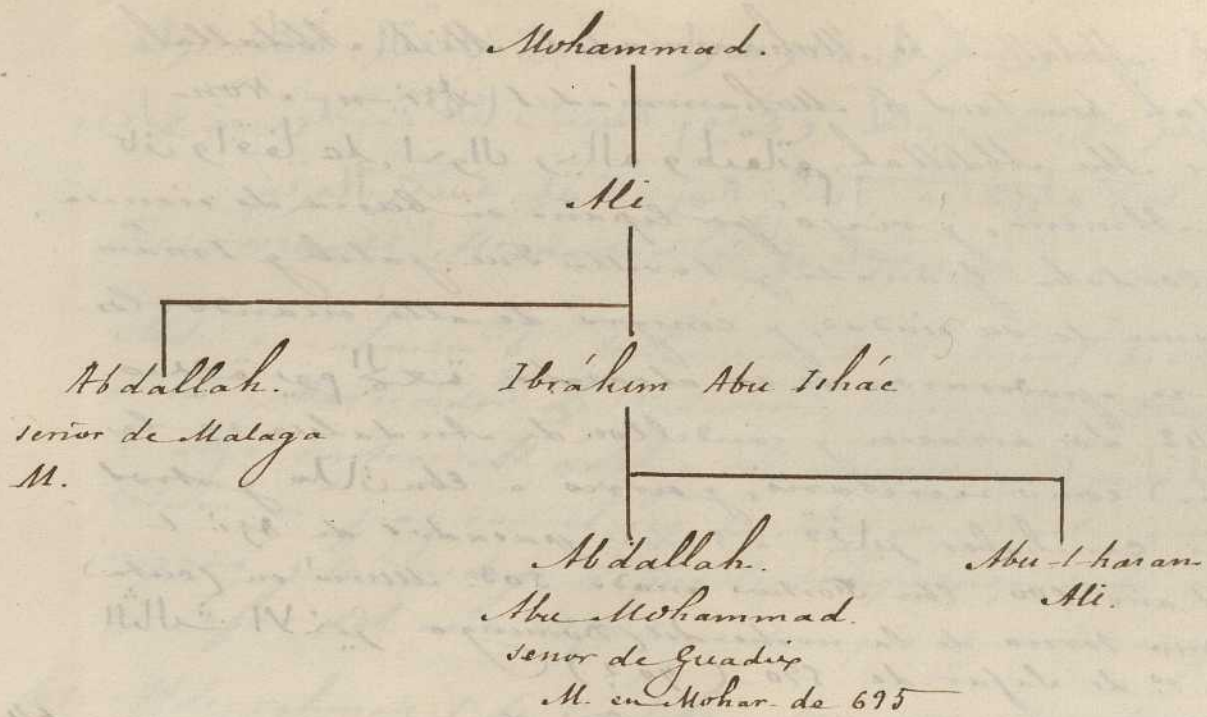 Mohammad.
Ali
Abdallah.
señor de Malaga
M.
Ibráhim Abu Ishác
Abdallah.
Abu Mohammad.
senor de Guadix
M. en Mohar. de 695
Abu-l-hasan
Ali.